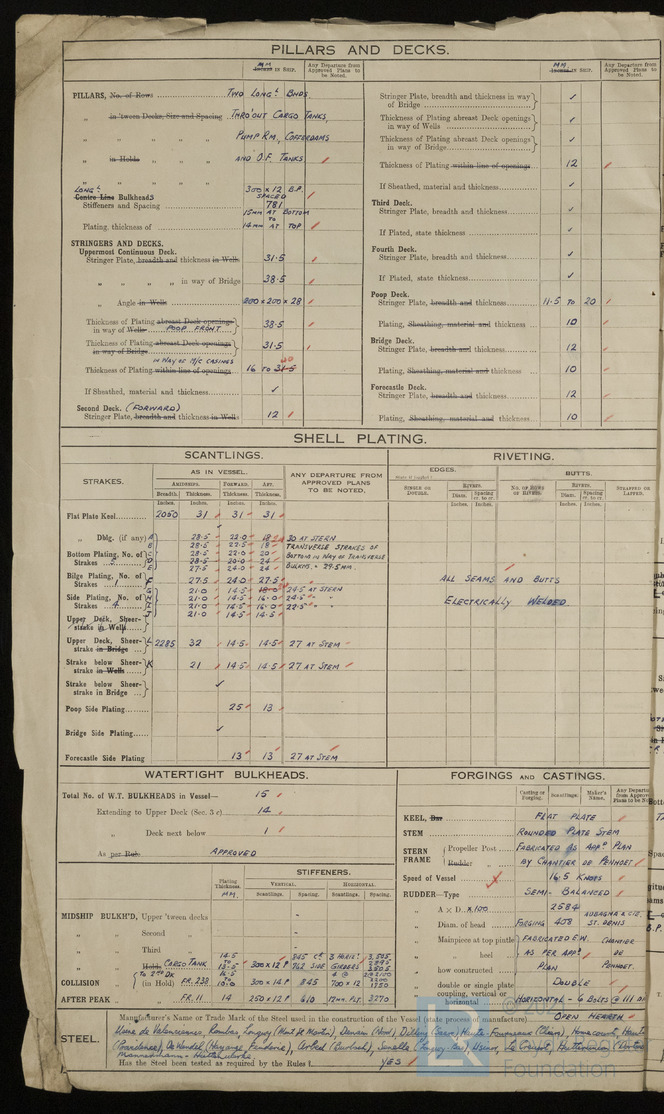 PILLARS AND DECKS.
MM
Inches in Ship.
Any Departure from Approved Plans to be Noted.
PILLARS, No. of Rows TWO LONGL BHDS
" in 'tween Decks, Size and Spacing THRO'OUT CARGO TANKS,
" " " " PUMP RM, COFFERDAMS
" in Holds " " AND O.F. TANKS
" " " "
LONGL
Centre Line Bulkheads
Stiffeners and Spacing 300 x 12 B.P. SPACED 781
Plating, thickness of 15MM AT BOTTOM TO 14MM AT TOP
STRINGERS AND DECKS.
Uppermost Continuous Deck.
Stringer Plate, breadth and thickness in Wells 31.5
" " " " in way of Bridge 38.5
" Angle in Wells 200 x 200 x 28
Thickness of Plating abreast Deck openings in way of Wells POOP FRONT 38.5
Thickness of Plating abreast Deck openings in way of Bridge 31.5
IN WAY OF M/C CASINGS
Thickness of Plating within line of openings 16 TO 31.5
If Sheathed, material and thickness ✓
Second Deck. (FORWARD)
Stringer Plate, breadth and thickness in Wells 12
MM
Inches in Ship.
Any Departure from Approved Plans to be Noted.
Stringer Plate, breadth and thickness in way of Bridge ✓
Thickness of Plating abreast Deck openings in way of Wells ✓
Thickness of Plating abreast Deck openings in way of Bridge ✓
Thickness of Plating within line of openings 12
If Sheathed, material and thickness ✓
Third Deck.
Stringer Plate, breadth and thickness ✓
If Plated, state thickness ✓
Fourth Deck.
Stringer Plate, breadth and thickness ✓
If Plated, state thickness ✓
Poop Deck.
Stringer Plate, breadth and thickness 11.5 TO 20
Plating, Sheathing, material and thickness 10
Bridge Deck.
Stringer Plate, breadth and thickness 12
Plating, Sheathing, material and thickness 10
Forecastle Deck.
Stringer Plate, breadth and thickness 12
Plating, Sheathing, material and thickness 10
SHELL PLATING.
SCANTLINGS.
RIVETING.
STRAKES.
AS IN VESSEL.
ANY DEPARTURE FROM APPROVED PLANS TO BE NOTED.
EDGES.
BUTTS.
AMIDSHIPS. FORWARD. AFT.
Breadth. Thickness. Thickness. Thickness.
Inches. Inches. Inches. Inches.
SINGLE OR DOUBLE.
RIVETS.
Diam. Spacing cr. to cr.
NO. OF ROWS OF RIVETS.
RIVETS.
Diam. Spacing cr. to cr.
STRAPPED OR LAPPED.
Inches. Inches. Inches. Inches.
Flat Plate Keel 2050 31 31 31
" Dblg. (if any) ✓
A 28.5 22.0 18 30 AT STERN
B 28.5 22.5 18 TRANSVERSE STRAKES OF
Bottom Plating, No. of Strakes 5 C 28.5 22.0 20 BOTTOM IN WAY OF TRANSVERSE
D 28.5 20.0 24 BULKHS. = 29.5MM.
E 27.5 24.0 24
Bilge Plating, No. of Strakes 1 F 27.5 24.0 27.5
Side Plating, No. of Strakes 4 G 21.0 14.5 18.0 24.5 AT STERN
H 21.0 14.5 16.0 24.5 " "
I 21.0 14.5 16.0 22.5 " "
J 21.0 14.5 14.5
Upper Deck, Sheer-strake in Wells
Upper Deck, Sheer-strake in Bridge L 2285 32 14.5 14.5 27 AT STEM
Strake below Sheer-strake in Wells K 21 14.5 14.5 27 AT STEM
Strake below Sheer-strake in Bridge ✓
Poop Side Plating 25 13
Bridge Side Plating ✓
Forecastle Side Plating 13 13 27 AT STEM
ALL SEAMS AND BUTTS
ELECTRICALLY WELDED
WATERTIGHT BULKHEADS.
Total No. of W.T. BULKHEADS in Vessel— 15
Extending to Upper Deck (Sec. 3 c) 14
" Deck next below 1
As per Rule. APPROVED
Plating Thickness. MM
STIFFENERS.
VERTICAL. HORIZONTAL.
Scantlings. Spacing. Scantlings. Spacing.
MIDSHIP BULKH'D, Upper 'tween decks -
" " Second " -
" " Third " -
" " Holds CARGO TANK 300 x 12 P 845 CL 762 SIDE 3 HORIZL GIRDERS
COLLISION " TO 2ND DK (in Hold) FR. 238 300 x 14 P 845 700 x 12
AFTER PEAK " " FR. 11 14 250 x 12 P 610 12MM. PLT 2270
FORGINGS AND CASTINGS.
Casting or Forging. Scantlings. Maker's Name. Any Departure from Approved Plans to be Noted
KEEL, Bar FLAT PLATE
STEM ROUNDED PLATE STEM
STERN FRAME Propeller Post FABRICATED AS APPD PLAN
Rudder " BY CHANTIER DE PENHOET
Speed of Vessel 16.5 KNOTS
RUDDER—Type SEMI-BALANCED
" A x D. x 100 2584
" Diam. of head FORGING 458 ST. DENIS
" Mainpiece at top pintle FABRICATED E.W. CHANTIER
" " heel AS PER APPD DE
" how constructed PLAN PENHOET
" double or single plate DOUBLE
" coupling, vertical or horizontal HORIZONTAL - 6 BOLTS @ 111 DI
STEEL.
Manufacturer's Name or Trade Mark of the Steel used in the construction of the Vessel (state process of manufacture) OPEN HEARTH
Usine de Valenciennes, Rombas, Longwy (Mont St Martin), Denain (Nord), Dilling (Saar), Homecourt,
(Providence), De Wendel (Hayange, Fonderie), Senelle (Longwy Bas), Usinor, Le Creusot,
Has the Steel been tested as required by the Rules? YES
Foundation